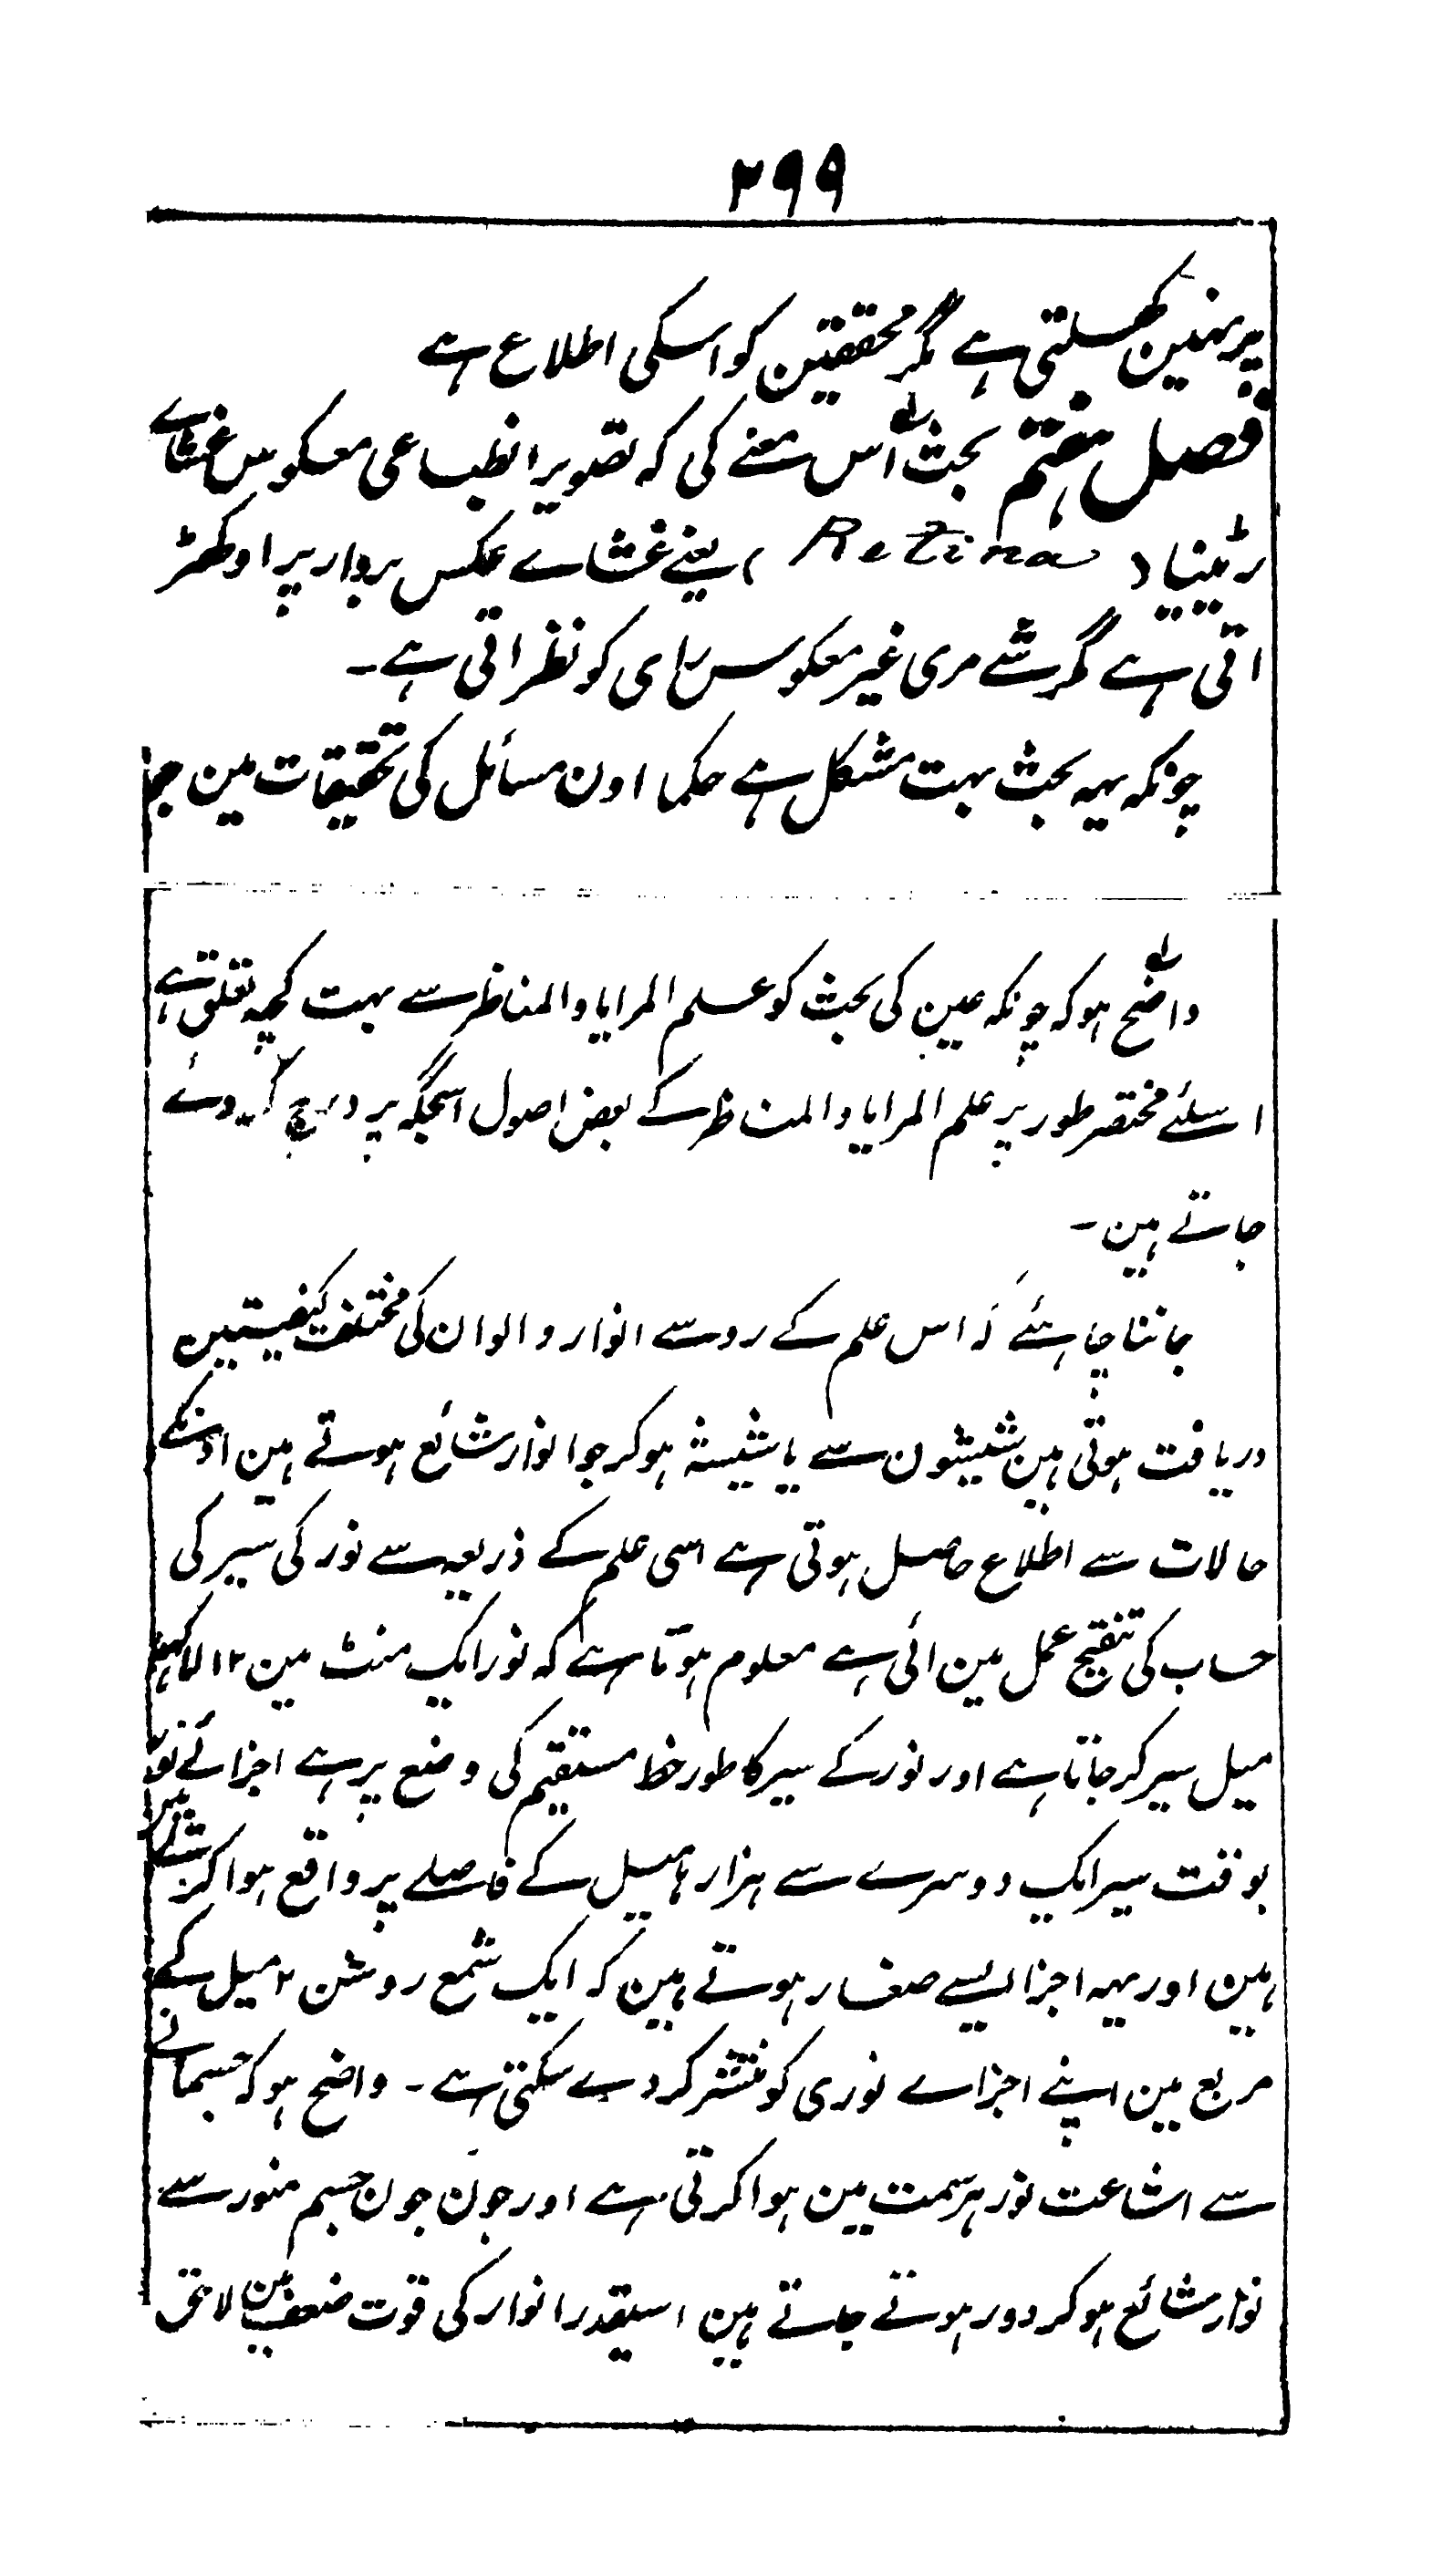 ۲۹۹
پر نہین کھلتی ہے مگر محققین کو اسکی اطلاع ہے
فصل ہفتم بحث اس معنے کی کہ تصویر انطباعی معکوس غشاے
رٹینا ( Retina ) یعنے غشاے عکس بردار پر اوکھڑ
اتی ہے مگر شے مری غیر معکوس رای کو نظر اتی ہے ۔
چونکہ یہہ بحث بہت مشکل ہے حکما اون مسائل کی تحقیقات مین
واضح ہو کہ چونکہ عین کی بحث کو علم المرایا والمناظر سے بہت کچہ تعلق ہے
اسلئے مختصر طور پر علم المرایا والمناظر کے بعض اصول اسجگہ پر درج کر دئے
جاتے ہین ۔
جاننا چاہئے کہ اس علم کے رو سے انوار و الوان کی مختلف کیفیتین
دریافت ہوتی ہین شیشون سے یا شیشہ ہو کر جو انوار شائع ہوتے ہین اونکے
حالات سے اطلاع حاصل ہوتی ہے اسی علم کے ذریعہ سے نور کی سیر کی
حساب کی تنقیح عمل مین ائی ہے معلوم ہوتا ہے کہ نور ایک منٹ مین ۱۲ لاکہہ
میل سیر کر جاتا ہے اور نور کے سیر کا طور خط مستقیم کی وضع پر ہے اجزائے نور
بوقت سیر ایک دوسرے سے ہزارہا میل کے فاصلے پر واقع ہوا کرتے
ہین اور یہہ اجزا ایسے صغار ہوتے ہین کہ ایک شمع روشن ۲ میل کے
مربع مین اپنے اجزاے نوری کو منتشر کر دے سکتی ہے ۔ واضح ہو کہ جسمانے
سے اشاعت نور ہر سمت مین ہوا کرتی ہے اور جون جون جسم منور سے
نوار شائع ہو کر دور ہوتے جاتے ہین اسیقدر انوار کی قوت مین ضعف لاحق